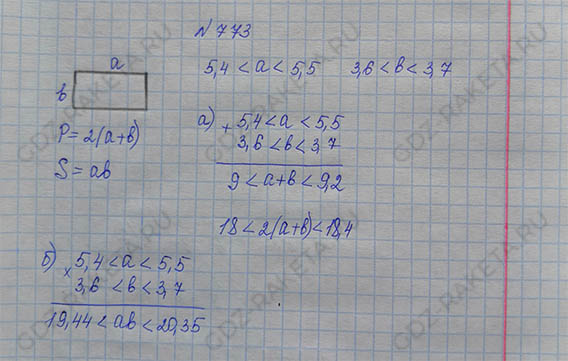 № 773
5,4 < a < 5,5   3,6 < b < 3,7
a
b
P = 2(a+b)
S = ab
а) + 5,4 < a < 5,5
3,6 < b < 3,7
9 < a+b < 9,2
18 < 2(a+b) < 18,4
б) × 5,4 < a < 5,5
3,6 < b < 3,7
19,44 < ab < 20,35
GDZ-RAKETA.RU